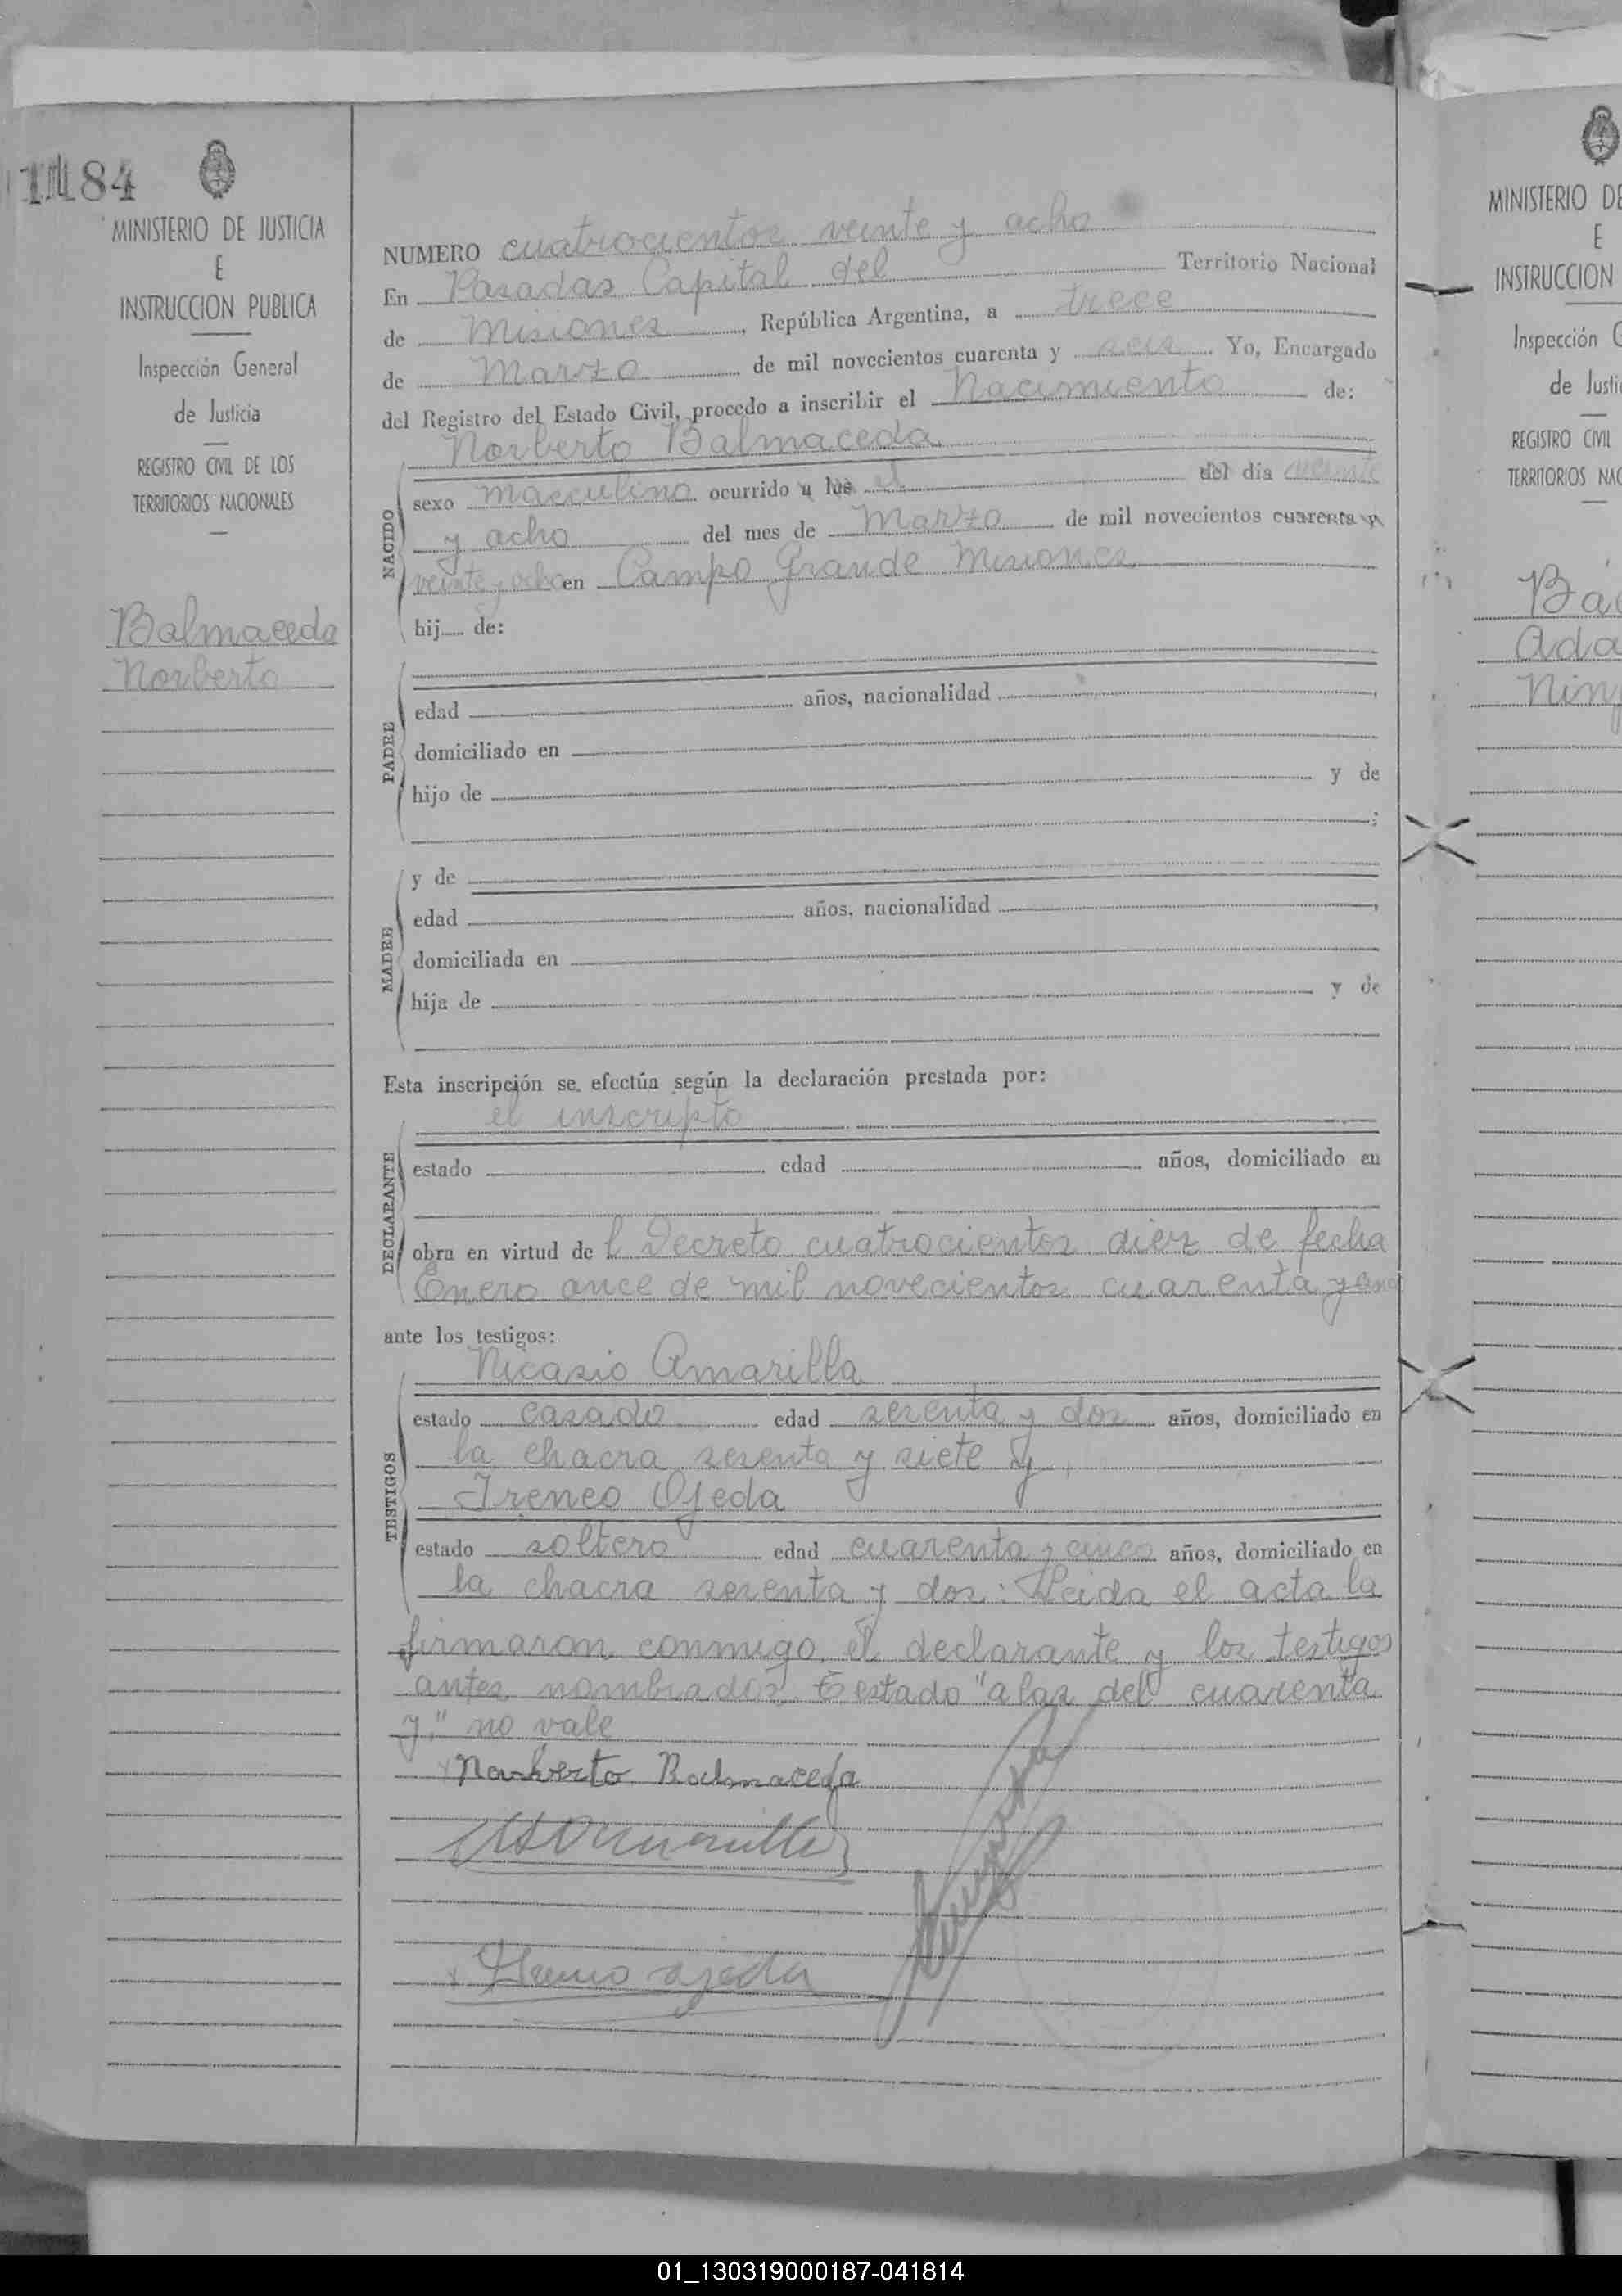 1184
MINISTERIO DE JUSTICIA
E
INSTRUCCION PUBLICA
Inspección General
de Justicia
REGISTRO CIVIL DE LOS
TERRITORIOS NACIONALES
Balmaceda
Norberto
NUMERO cuatrocientos veinte y ocho
En Posadas Capital del Territorio Nacional
de Misiones, República Argentina, a trece
de Marzo de mil novecientos cuarenta y seis. Yo, Encargado
del Registro del Estado Civil, procedo a inscribir el Nacimiento de:
Norberto Balmaceda
NACIDO
sexo masculino ocurrido a las el del día veinte
y ocho del mes de Marzo de mil novecientos cuarenta y
veinte y ocho en Campo Grande Misiones
hij de:
PADRE
edad años, nacionalidad
domiciliado en
hijo de y de
MADRE
y de
edad años, nacionalidad
domiciliada en
hija de y de
Esta inscripción se efectúa según la declaración prestada por:
el inscripto
DECLARANTE
estado edad años, domiciliado en
obra en virtud de l Decreto cuatrocientos diez de fecha
Enero once de mil novecientos cuarenta y
ante los testigos:
Nicasio Amarilla
TESTIGOS
estado casado edad sesenta y dos años, domiciliado en
la chacra sesenta y siete y
Ireneo Ojeda
estado soltero edad cuarenta y cinco años, domiciliado en
la chacra sesenta y dos: Leida el acta la
firmaron conmigo, el declarante y los testigos
antes nombrados. Testado "a las del cuarenta
y" no vale
Norberto Balmaceda
Ireneo ojeda
MINISTERIO DE
E
INSTRUCCION
Inspección G
de Justi
REGISTRO CIVIL
TERRITORIOS NAC
Ba
Ada
Nin
01_130319000187-041814